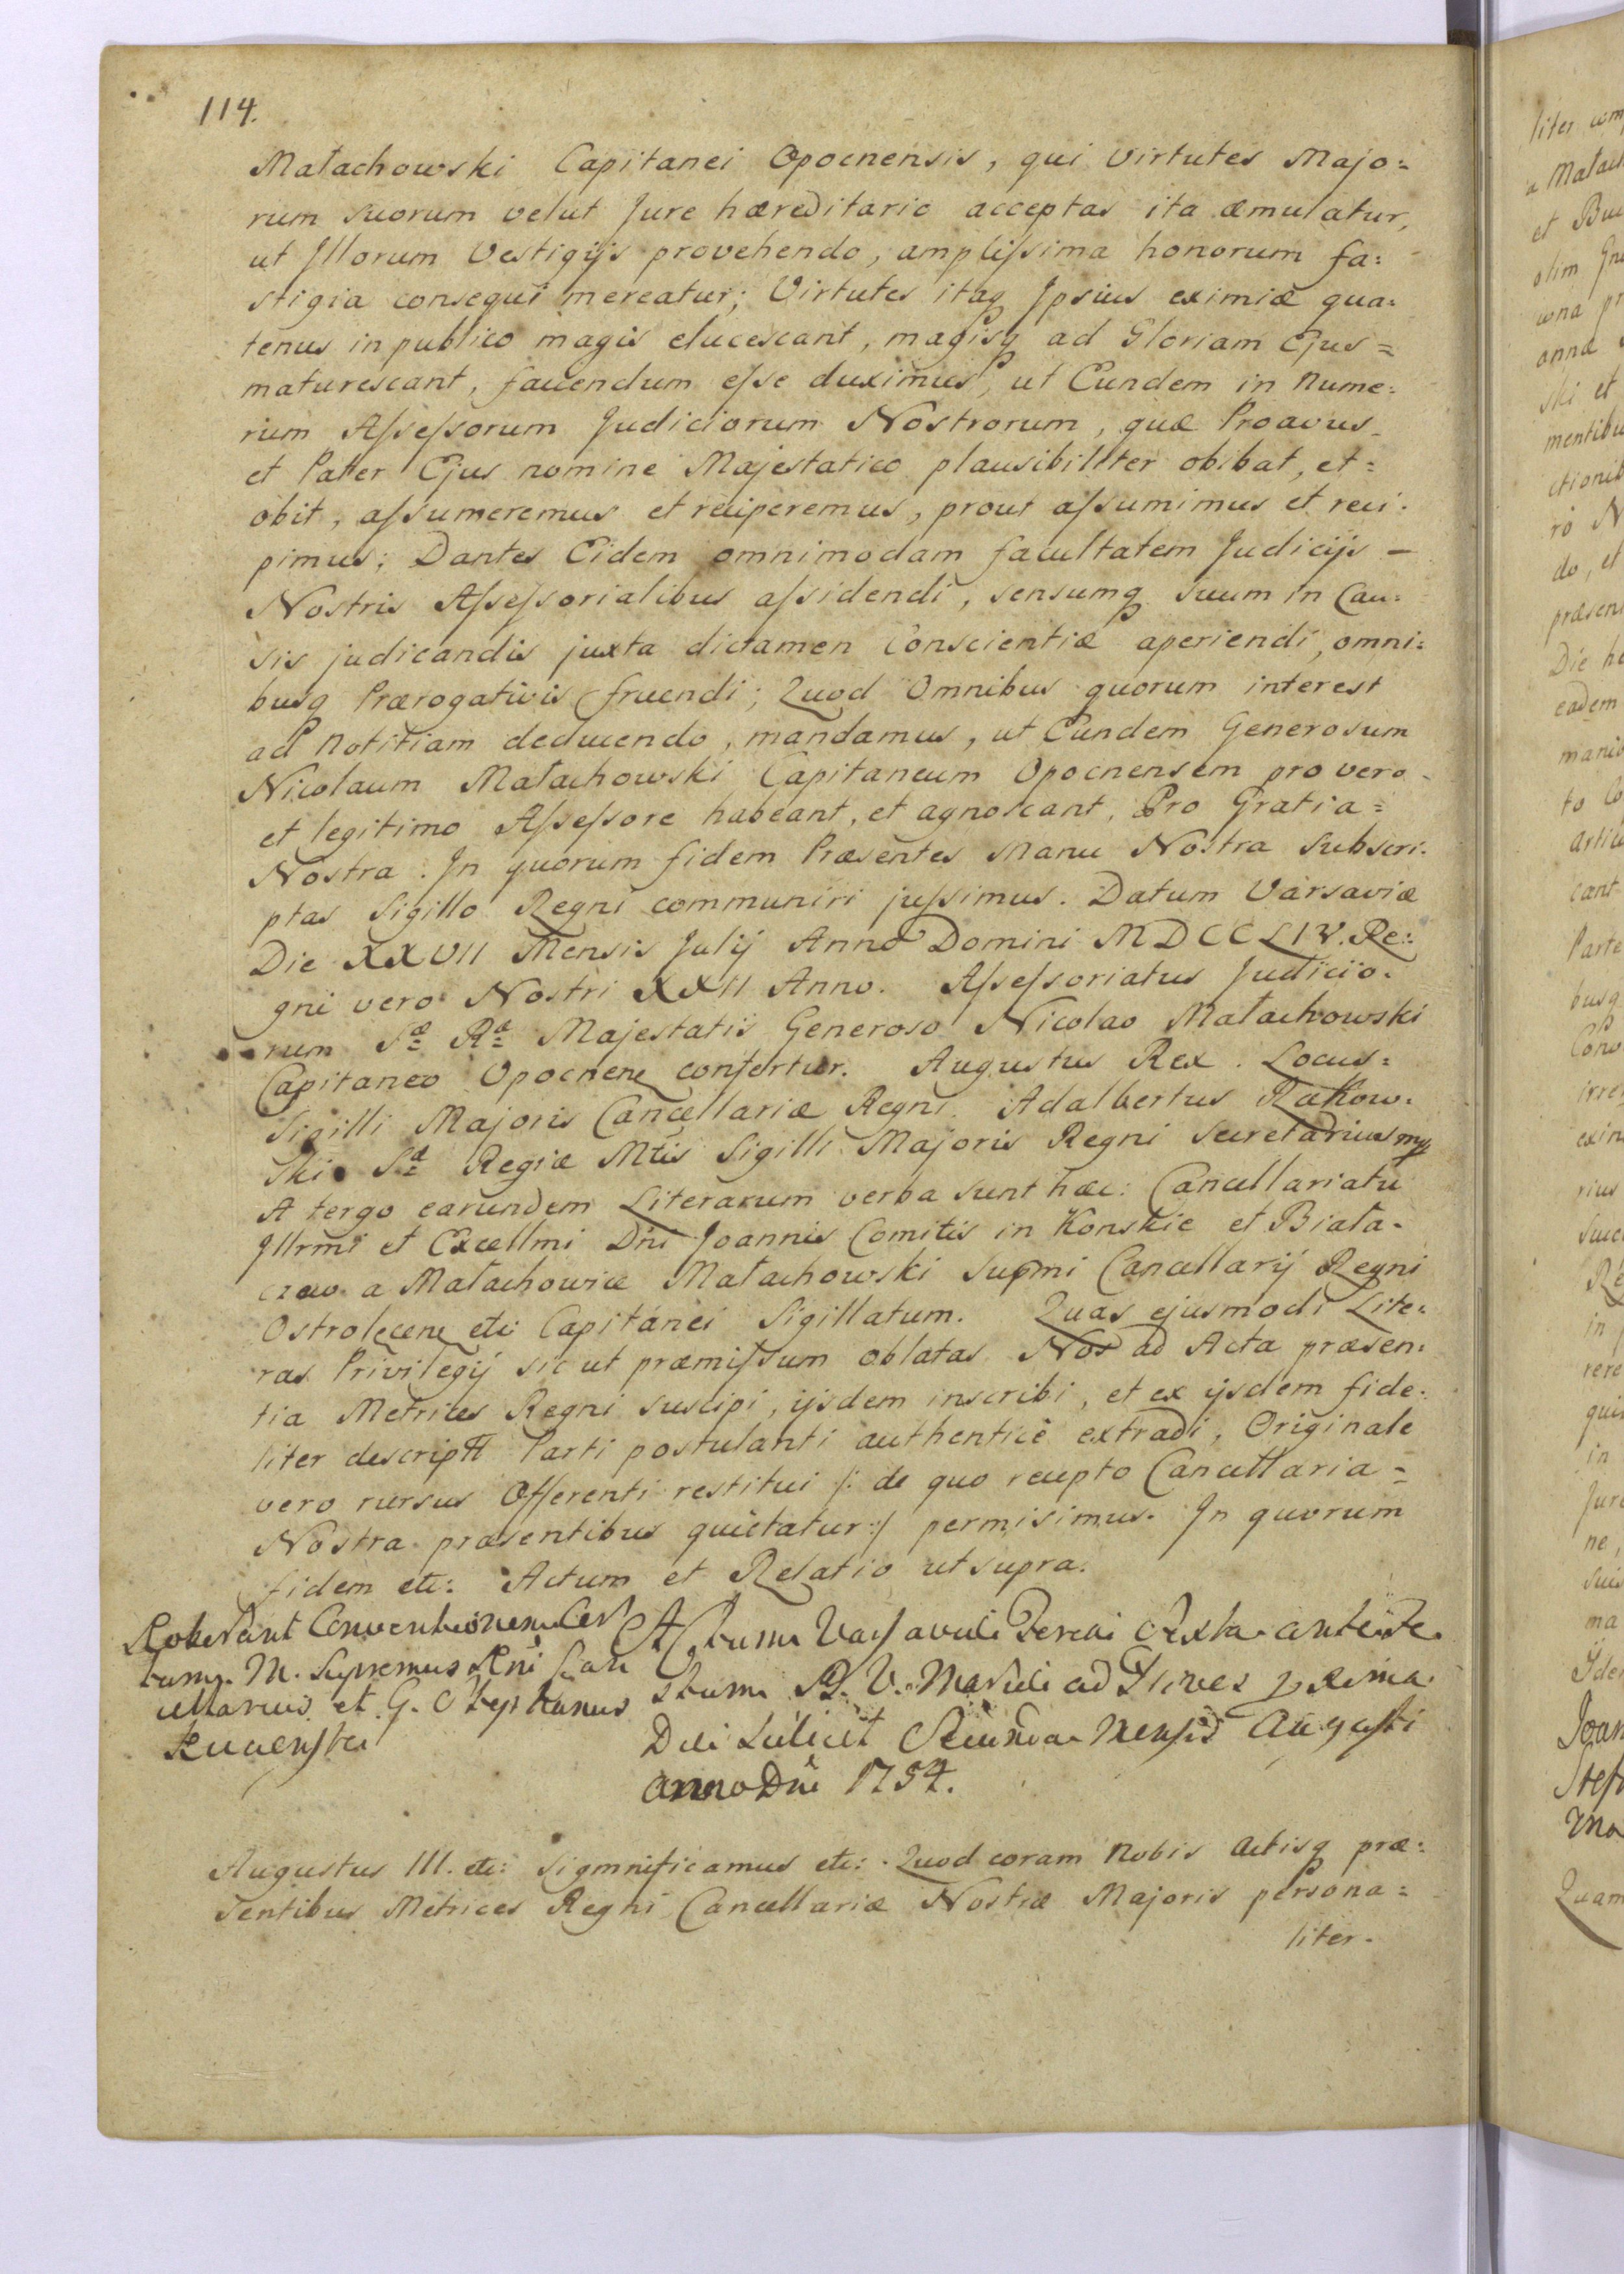 114.
Małachowski Capitanei Opocnensis, qui Virtutes Majo=
rum suorum velut Jure hæreditario acceptas ita æmulatur,
ut Jllorum Vestigijs provehendo, amplissima honorum fa=
stigia consequi mereatur; Virtutes itaq Jpsius eximiæ qua=
tenus in publico magis elucescant, magisq ad Gloriam Ejus=
maturescant, favendum esse duximus, ut Eundem in Nume=
rum Assessorum Judiciorum Nostrorum, quæ Proavus
et Pater Ejus nomine Majestatico plausibiliter obibat, et=
obit, assumeremus et reciperemus, prout assumimus et reci=
pimus; Dantes Eidem omnimodam facultatem Judicijs —
Nostris Assessorialibus assidendi, sensumq suum in Cau=
sis judicandis juxta dictamen Conscientiæ aperiendi, omni=
busq Prærogativis fruendi; Quod Omnibus quorum interest
ad Notitiam deducendo, mandamus, ut Eundem Generosum
Nicolaum Małachowski Capitaneum Opocnensem pro vero
et legitimo Assessore habeant, et agnoscant, Pro Gratia=
Nostra. Jn quorum fidem Præsentes Manu Nostra Subscri=
ptas Sigillo Regni communiri jussimus. Datum Varsaviæ
Die XXVII Mensis Julij Anno Domini MDCCLIV. Re=
gni vero Nostri XXII Anno. Assessoriatus Judicio=
rum Sæ Ræ Majestatis Generoso Nicolao Małachowski
Capitaneo Opocnen conferṭur. Augustus Rex. Locus=
Sigilli Majoris Cancellariæ Regni. Adalbertus Rakow=
ski Sæ Regiæ Mtis Sigilli Majoris Regni Secretarius mp
A tergo earundem Literarum verba sunt hæc: Cancellariatu
Jllrmi et Excellmi Dni Joannis Comitis in Konskie et Biała=
czew a Małachowice Małachowski Supmi Cancellarij Regni
Ostrolęcen etc Capitanei Sigillatum. Quas ejusmodi Lite=
ras Privilegij sic ut præmissum oblatas Nos ad Acta præsen=
tia Metrices Regni suscipi, ijsdem inscribi, et ex ijsdem fide=
liter descriptt Parti postulanti authenticè extradi, Originale
vero rursus Offerenti restitui /: de quo recepto Cancellaria=
Nostra præsentibus quietatur :/ permisimus. Jn quorum
fidem etc: Actum et Relatio ut supra.
Roborant Conventionem
M. Supremus Rni Can
cellarius et G. Stephanus
Actum Varsaviæ Feria Sexta ante
Festum B. V. Mariæ ad Nives
Die scilicet Secunda Mensis Augusti
Anno Dni 1754.
Augustus III. etc: Sigmnificamus etc: Quod coram Nobis Actisq præ=
sentibus Metrices Regni Cancellariæ Nostræ Majoris persona=
liter.